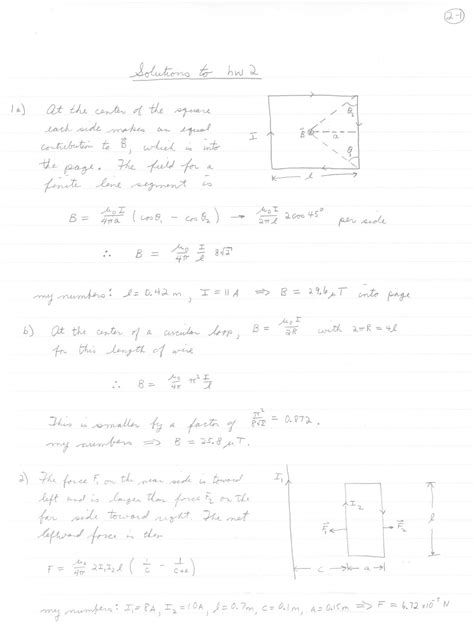 2-1
Solutions to hw 2
1a) At the center of the square
each side makes an equal
contribution to B⃗, which is into
the page. The field for a
finite line segment is
I B⃗ a θ₂ θ₁ l
B = μ₀I/4πa (cos θ₁ - cos θ₂) → μ₀I/2πl 2cos45° per side
∴ B = μ₀/4π I/l 8√2
my numbers: l = 0.42 m, I = 11 A ⇒ B = 29.6 μT into page
b) At the center of a circular loop, B = μ₀I/2R with 2πR = 4l
for this length of wire
∴ B = μ₀/4π π² I/l
This is smaller by a factor of π²/8√2 = 0.872.
my numbers ⇒ B = 25.8 μT.
2) The force F₁ on the near side is toward
left and is larger than force F₂ on the
far side toward right. The net
leftward force is then
I₁ I₂ F⃗₁ F⃗₂ l c a
F = μ₀/4π 2I₁I₂l (1/c - 1/c+a)
my numbers: I₁ = 8A, I₂ = 10A, l = 0.7m, c = 0.1m, a = 0.15m ⇒ F = 6.72 × 10⁻⁵ N